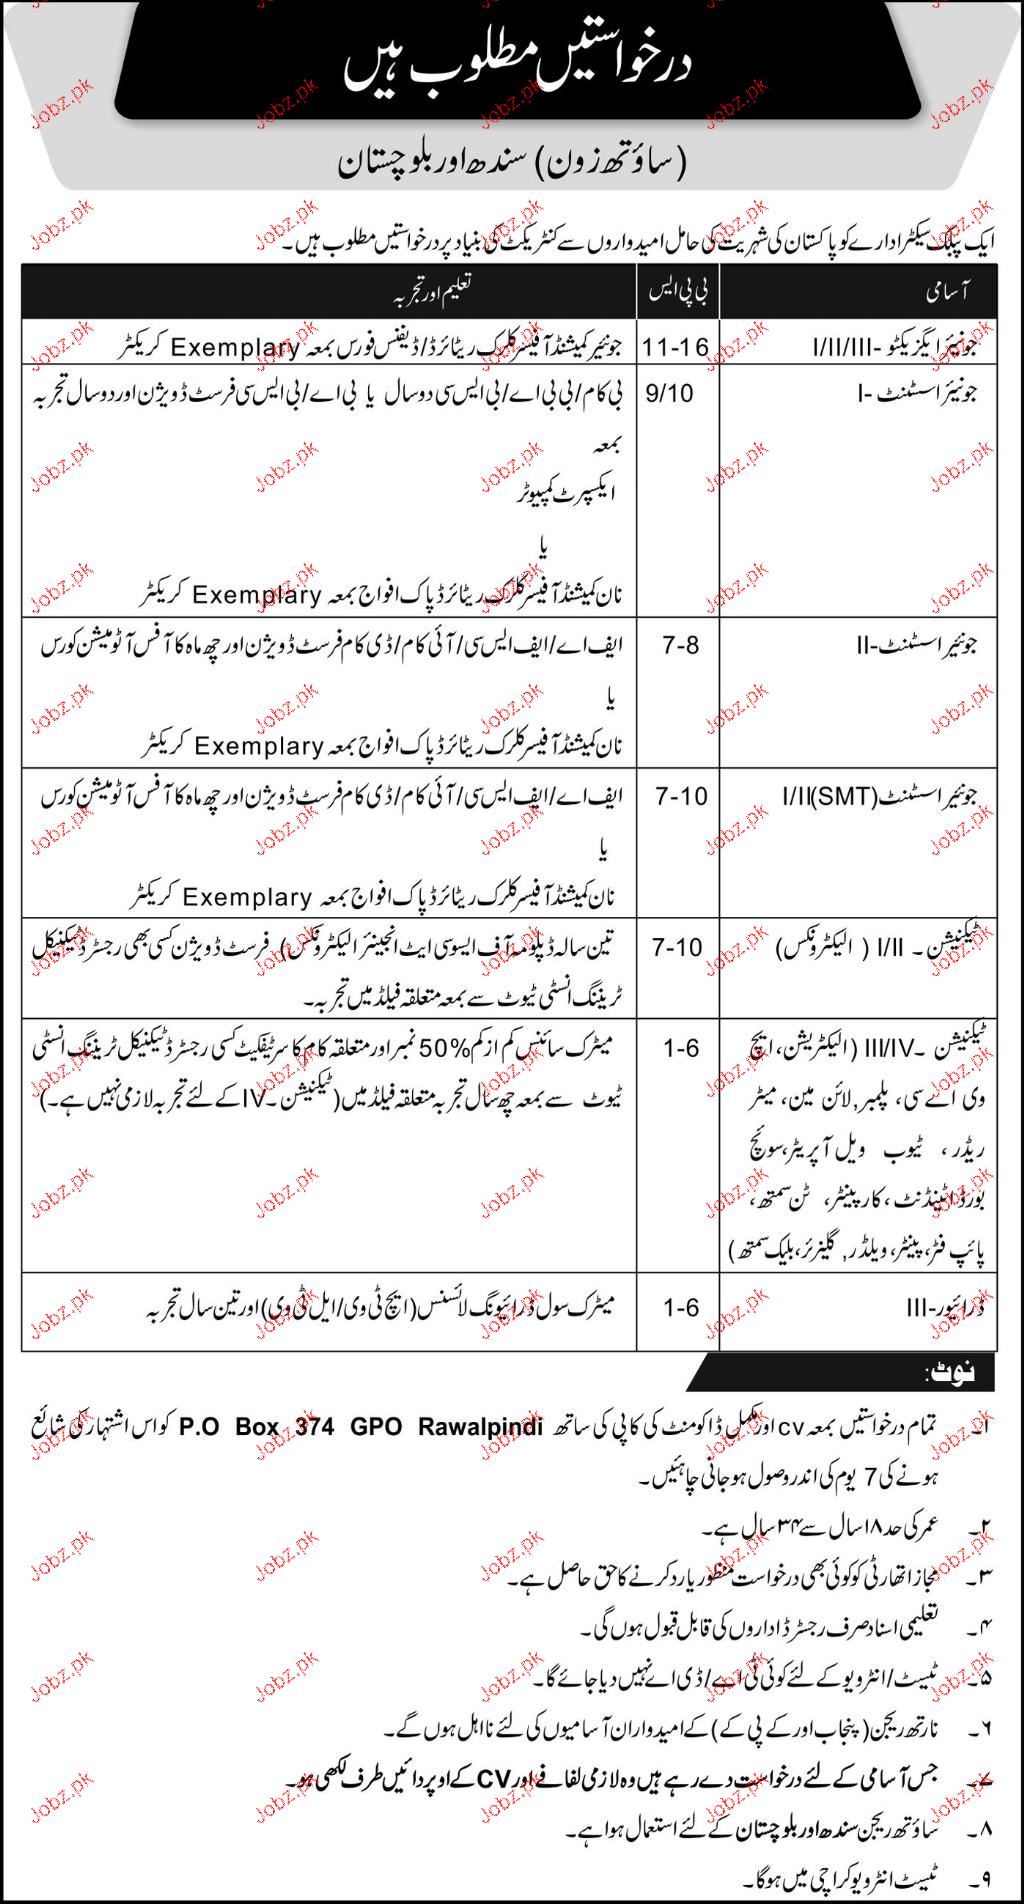 درخواستیں مطلوب ہیں
(ساؤتھ زون) سندھ اور بلوچستان
ایک پبلک سیکٹر ادارے کو پاکستان کی شہریت کی حامل امیدواروں سے کنٹریکٹ کی بنیاد پر درخواستیں مطلوب ہیں۔
آسامی بی پی ایس تعلیم اور تجربہ
جونیئر ایگزیکٹو -I/II/III 11-16 جونیئر کمیشنڈ آفیسر کلرک ریٹائرڈ/ڈیفنس فورس بمعہ Exemplary کریکٹر
جونیئر اسسٹنٹ -I 9/10 بی کام/بی بی اے/بی ایس سی دو سال یا بی اے/بی ایس سی فرسٹ ڈویژن اور دو سال تجربہ
بمعہ
ایکسپرٹ کمپیوٹر
یا
نان کمیشنڈ آفیسر کلرک ریٹائرڈ پاک افواج بمعہ Exemplary کریکٹر
جونیئر اسسٹنٹ-II 7-8 ایف اے/ایف ایس سی/آئی کام/ڈی کام فرسٹ ڈویژن اور چھ ماہ کا آفس آٹومیشن کورس
یا
نان کمیشنڈ آفیسر کلرک ریٹائرڈ پاک افواج بمعہ Exemplary کریکٹر
جونیئر اسسٹنٹ I/II(SMT) 7-10 ایف اے/ایف ایس سی/آئی کام/ڈی کام فرسٹ ڈویژن اور چھ ماہ کا آفس آٹومیشن کورس
یا
نان کمیشنڈ آفیسر کلرک ریٹائرڈ پاک افواج بمعہ Exemplary کریکٹر
ٹیکنیشن۔ I/II (الیکٹرونکس) 7-10 تین سالہ ڈپلومہ آف ایسوسی ایٹ انجینئر الیکٹرونکس) فرسٹ ڈویژن کسی بھی رجسٹرڈ ٹیکنیکل
ٹریننگ انسٹی ٹیوٹ سے بمعہ متعلقہ فیلڈ میں تجربہ۔
ٹیکنیشن ۔III/IV (الیکٹریشن، ایچ
وی اے سی، پلمبر, لائن مین، میٹر
ریڈر، ٹیوب ویل آپریٹر، سوئچ
بورڈ اٹینڈنٹ، کارپینٹر، ٹن سمتھ،
پائپ فٹر، پینٹر، ویلڈر, گلینرئر، بلیک سمتھ)
1-6
میٹرک سائنس کم از کم %50 نمبر اور متعلقہ کام کا سرٹیفکیٹ کسی رجسٹرڈ ٹیکنیکل ٹریننگ انسٹی
ٹیوٹ سے بمعہ چھ سال تجربہ متعلقہ فیلڈ میں (ٹیکنیشن۔IV کے لئے تجربہ لازمی نہیں ہے۔)
ڈرائیور-III 1-6 میٹرک سول ڈرائیونگ لائسنس (ایچ ٹی وی/ایل ٹی وی) اور تین سال تجربہ
نوٹ:
۱۔ تمام درخواستیں بمعہ cv اور مکمل ڈاکومنٹ کی کاپی کی ساتھ P.O Box 374 GPO Rawalpindi کو اس اشتہار کی شائع
ہونے کی 7 یوم کی اندر وصول ہو جانی چاہئیں۔
۲۔ عمر کی حد ۱۸ سال سے ۳۴ سال ہے۔
۳۔ مجاز اتھارٹی کو کوئی بھی درخواست منظور یا رد کرنے کا حق حاصل ہے۔
۴۔ تعلیمی اسناد صرف رجسٹرڈ اداروں کی قابل قبول ہوں گی۔
۵۔ ٹیسٹ/انٹرویو کے لئے کوئی ٹی اے/ڈی اے نہیں دیا جائے گا۔
۶۔ نارتھ ریجن (پنجاب اور کے پی کے) کے امیدوار ان آسامیوں کی لئے نااہل ہوں گے۔
۷۔ جس آسامی کے لئے درخواست دے رہے ہیں وہ لازمی لفافے اور CV کے اوپر دائیں طرف لکھی ہو۔
۸۔ ساؤتھ ریجن سندھ اور بلوچستان کے لئے استعمال ہوا ہے۔
۹۔ ٹیسٹ انٹرویو کراچی میں ہوگا۔
Jobz.pk